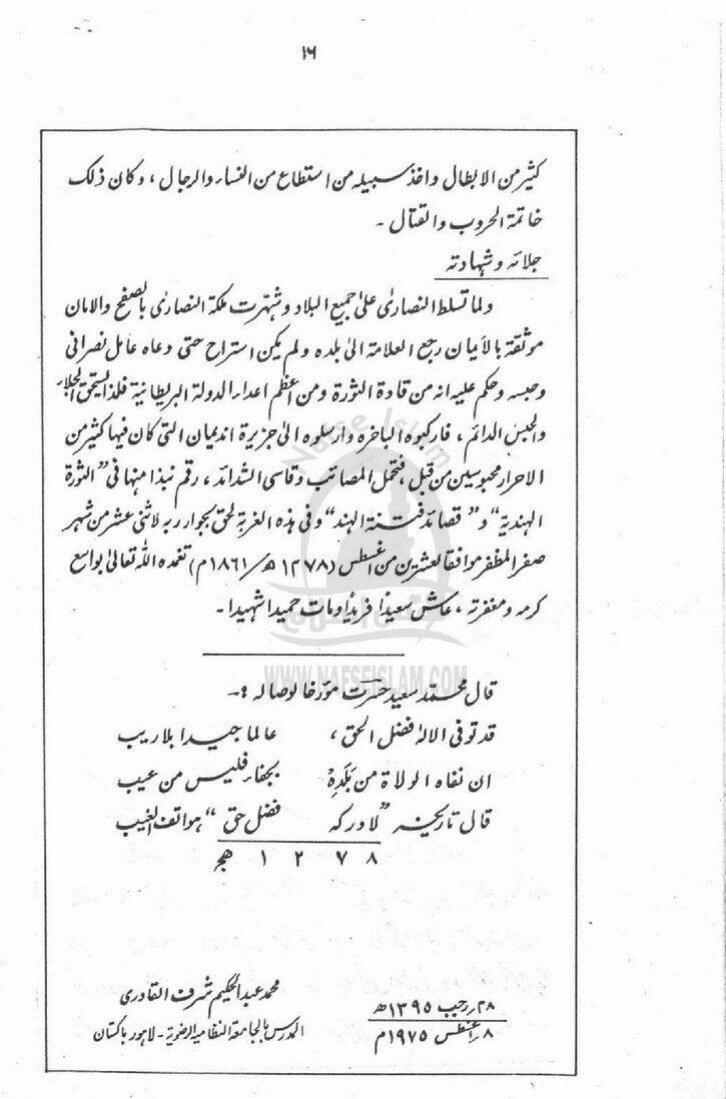 ١٦
كثير من الابطال واخذ سبيله من استطاع من النساء والرجال ، وكان ذلك
خاتمة الحروب والقتال ـ
جلائه وشهادته
ولما تسلط النصارىٰ علىٰ جميع البلاد وشهّرت ملكة النصارىٰ بالصفح والامان
موثقة بالأيمان رجع العلامة الىٰ بلده ولم يكن استراح حتى دعاه عامل نصرانى
وحبسه وحكم عليه انه من قادة الثورة ومن اعظم اعداء الدولة البريطانية فلذا يستحق الجلاء
والحبس الدائم ، فاركبوه الباخره وارسلوه الىٰ جزيرة انديمان التى كان فيها كثير من
الاحرار محبوسين من قبل ، فتحمل المصائب وقاسى الشدائد ، رقم نبذا منها فى "الثورة
الهندية" و" قصائد فتنة الهند" وفى هذه الغربة لحق بجوار ربه لاثنى عشر من شهر
صفر المظفر موافقا لعشرين من اغسطس (١٢٧٨ ھ/ ١٨٦١م) تغمده الله تعالىٰ بواسع
كرمه ومغفرته ، عاش سعيدًا فريدًا ومات حميدا شهيدا ـ
WWW.NAFSEISLAM.COM
قال محمد سعيد حسرت مؤرخا لوصاله :ـ
قد توفى الالهٰ فضل الحق ، عالما جيدا بلاريب
ان نفاه الولاة من بَلَدِهٖ بجفاء فليس من عيب
قال تاريخه "لادركه فضل حق" هواتف الغيب
٨ ٧ ٢ ١ هج
محمد عبد الحكيم شرف القادرى
المدرس بالجامعة النظامية الرضوية ـ لاهور باكستان
٢٨ رجب ١٣٩٥ھ
٨ اغسطس ١٩٧٥م